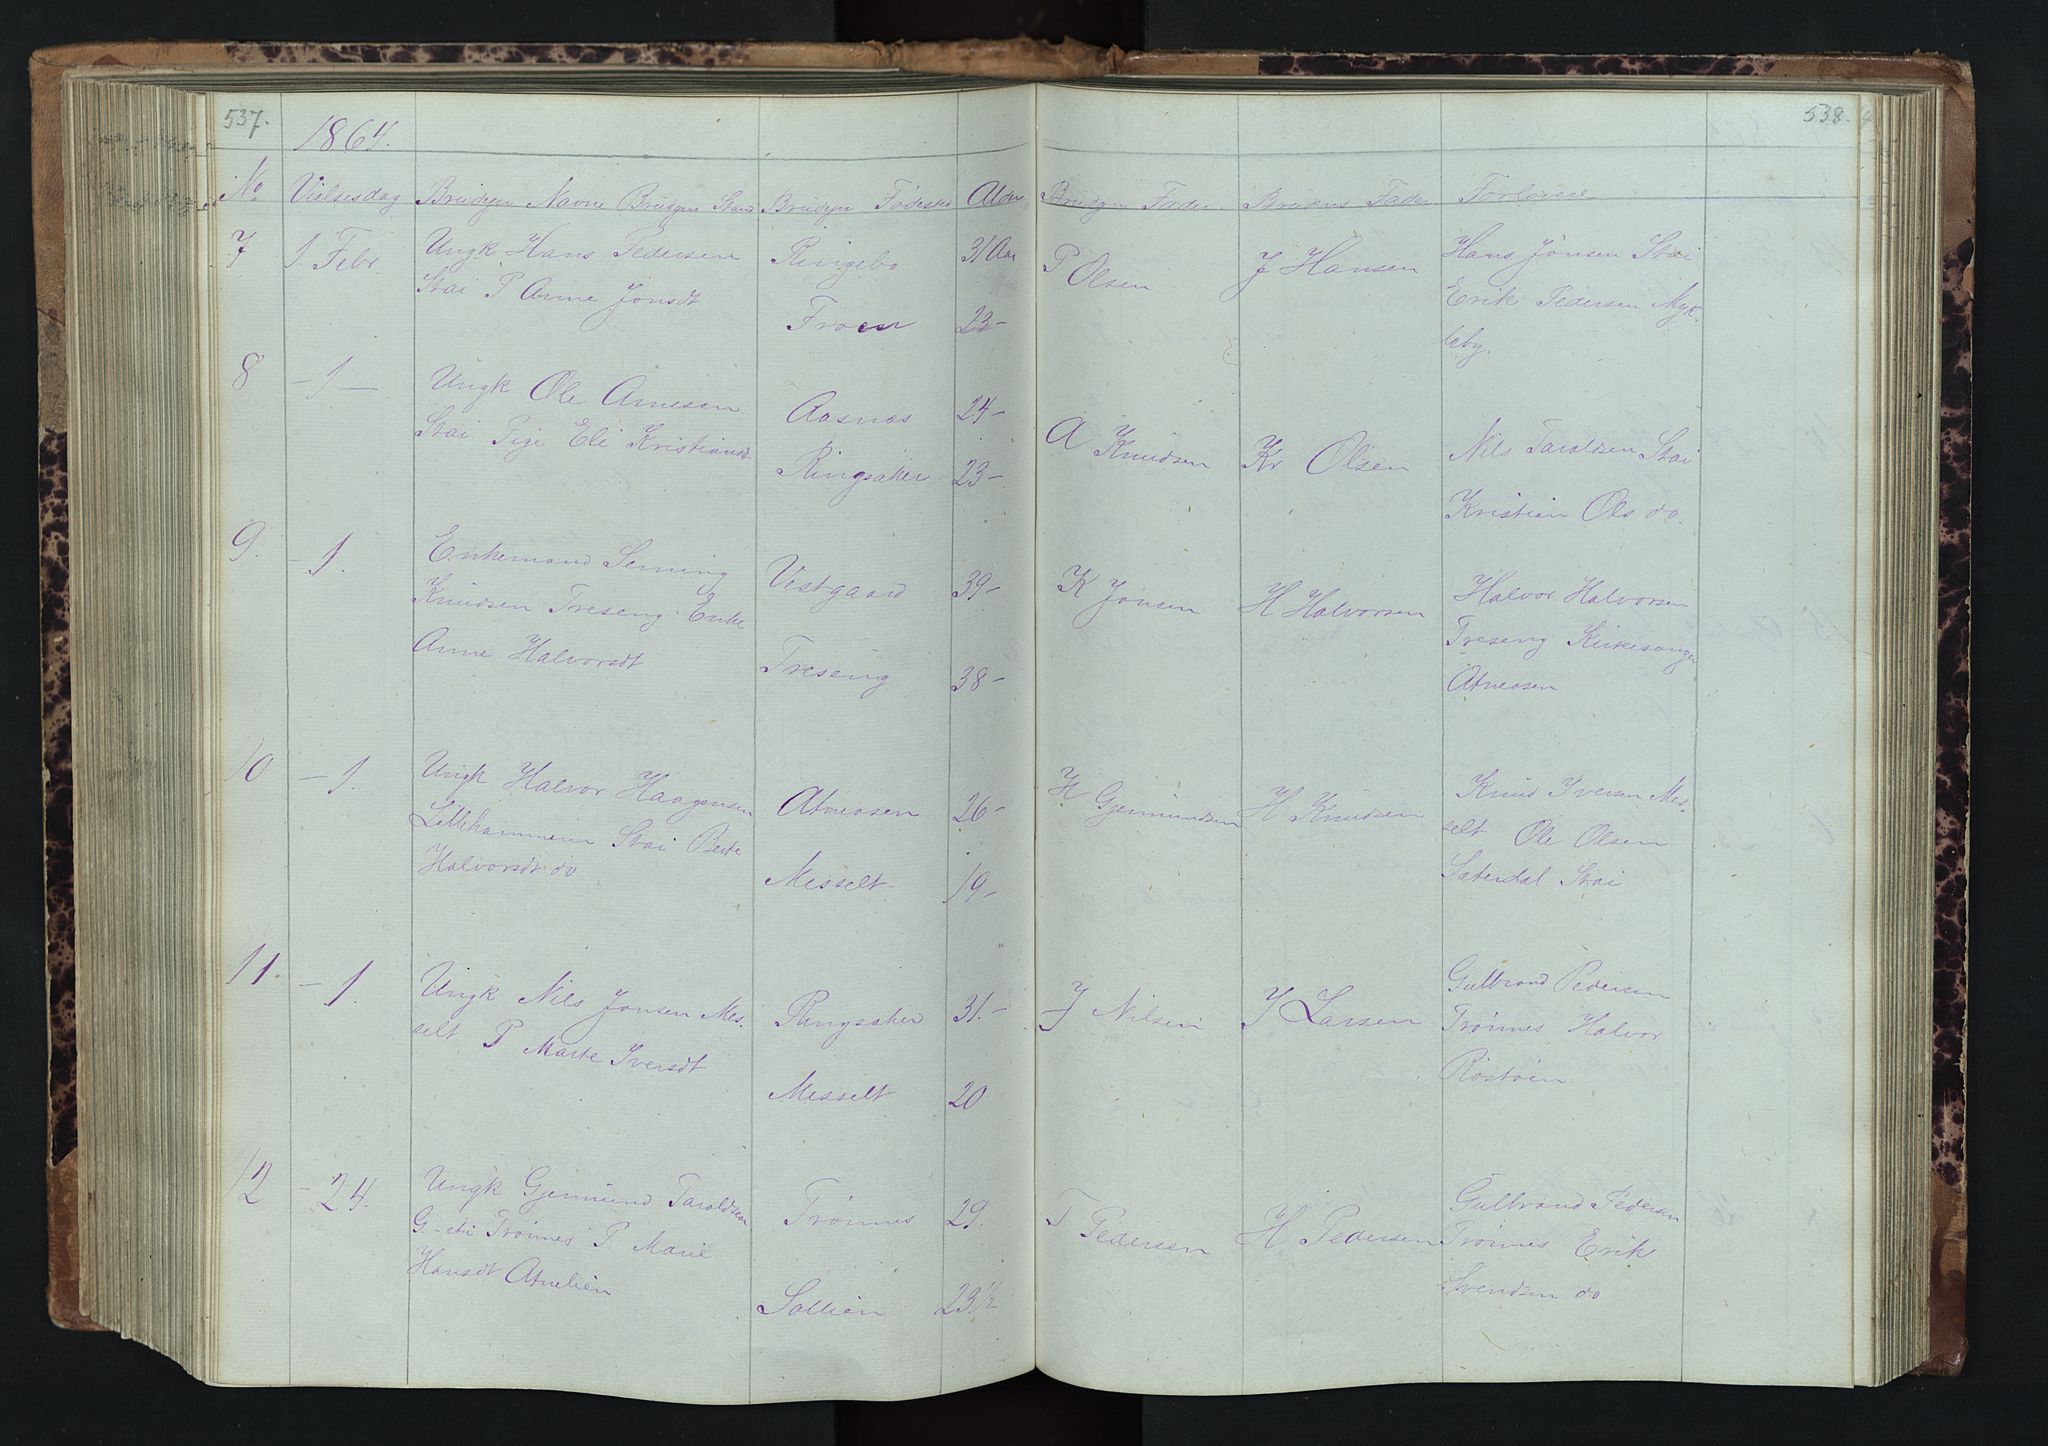 537.
538.
1864.
No Vielsesdag Brudgm Navne Brudgm Stand Brudgm Fødested Alder Brudgm Fader Brudens Fader Forlovere
7 1. Febr Ungk Hans Pedersen Ringebo 31 Aar P Olsen J Hansen Hans Jonsen Stai
Stai P Anne Jonsdt Froen 23- Erik Pedersen Myk-
leby.
8 -1- Ungk Ole Arnesen Aasnes 24- A Knudsen Kr Olsen Nils Taraldsen Stai
Stai Pige Eli Kristiansdt Ringsaker 23- Kristian Ols do.
9. -1. Enkemand Serning Vestgaard 39- K Jonsen H Halvorsen Halvor Halvorsen
Knudsen Treseng. Enke Treseng Kirkesanger
Anne Halvorsdt Treseng 38- Atneosen
10 -1. Ungk Halvor Haagensen Atneosen 26- H Gjermundsen H Knudsen Knud Iversen Mes-
Lillehammeren Stai Berte selt Ole Olsen
Halvorsdt do Messelt 19- Saterdal Stai
11. -1. Ungk Nils Jonsen Mes- Ringsaker 31.- J Nilsen I Larsen Gulbrand Pedersen
selt P Marte Iversdt Messelt 20 Trønnes Halvor
Røstøen
12 -24. Ungk Gjermund Taraldsen Trønnes 29. T Pedersen H Pedersen Gulbrand Pedersen
Trønnes P Marie Trønnes Erik
Hansdt Atnelien Sollien 23 ½ Svendsen do